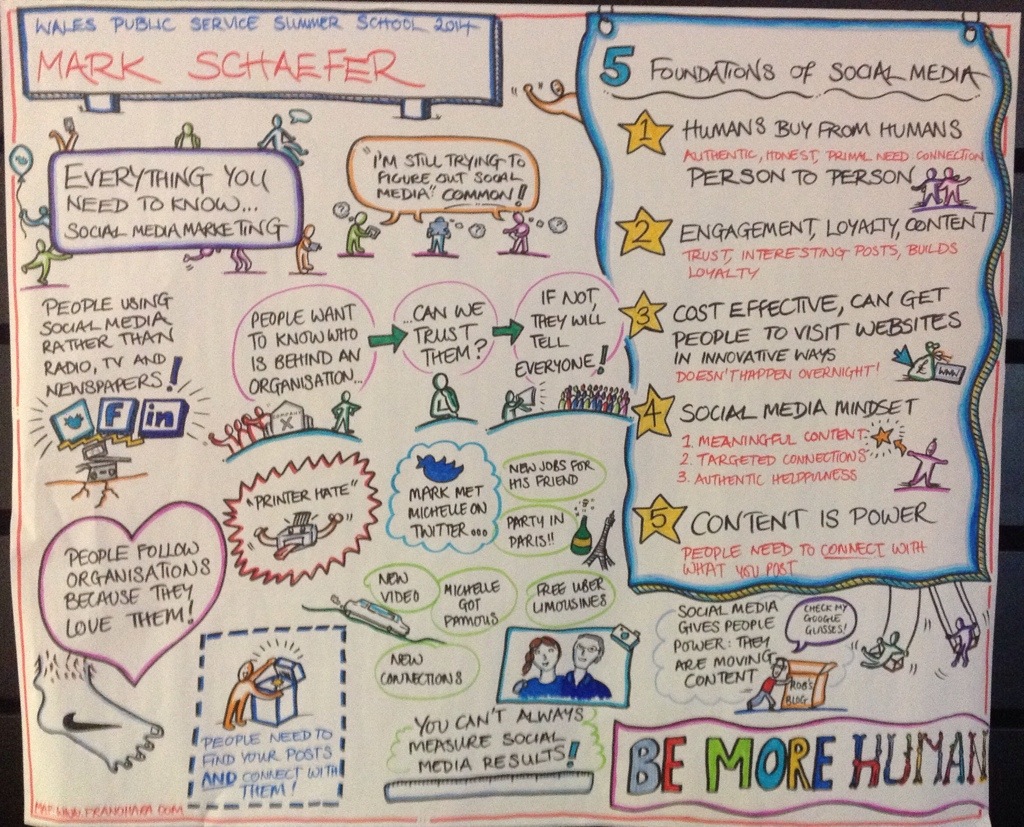 WALES PUBLIC SERVICE SUMMER SCHOOL 2014
MARK SCHAEFER
EVERYTHING YOU
NEED TO KNOW...
SOCIAL MEDIA MARKETING
"I'M STILL TRYING TO
FIGURE OUT SOCIAL
MEDIA" COMMON!!
?
?
PEOPLE USING
SOCIAL MEDIA
RATHER THAN
RADIO, TV AND
NEWSPAPERS!
f in
PEOPLE WANT
TO KNOW WHO
IS BEHIND AN
ORGANISATION...
X
...CAN WE
TRUST
THEM?
IF NOT,
THEY WILL
TELL
EVERYONE!
"PRINTER HATE"
MARK MET
MICHELLE ON
TWITTER...
NEW JOBS FOR
HIS FRIEND
PARTY IN
PARIS!!
NEW
VIDEO
MICHELLE
GOT
FAMOUS
FREE UBER
LIMOUSINES
NEW
CONNECTIONS
PEOPLE FOLLOW
ORGANISATIONS
BECAUSE THEY
LOVE THEM!
PEOPLE NEED TO
FIND YOUR POSTS
AND CONNECT WITH
THEM!
YOU CAN'T ALWAYS
MEASURE SOCIAL
MEDIA RESULTS!
5 FOUNDATIONS OF SOCIAL MEDIA
1 HUMANS BUY FROM HUMANS
AUTHENTIC, HONEST, PRIMAL NEED: CONNECTION
PERSON TO PERSON
2 ENGAGEMENT, LOYALTY, CONTENT
TRUST, INTERESTING POSTS, BUILDS
LOYALTY
3 COST EFFECTIVE, CAN GET
PEOPLE TO VISIT WEBSITES
IN INNOVATIVE WAYS
DOESN'T HAPPEN OVERNIGHT!
£
WWW
4 SOCIAL MEDIA MINDSET
1. MEANINGFUL CONTENT
2. TARGETED CONNECTIONS
3. AUTHENTIC HELPFULNESS
5 CONTENT IS POWER
PEOPLE NEED TO CONNECT WITH
WHAT YOU POST
SOCIAL MEDIA
GIVES PEOPLE
POWER: THEY
ARE MOVING
CONTENT
CHECK MY
GOOGLE
GLASSES!
ROB'S
BLOG
BE MORE HUMAN
WWW.FRANOHARA.COM